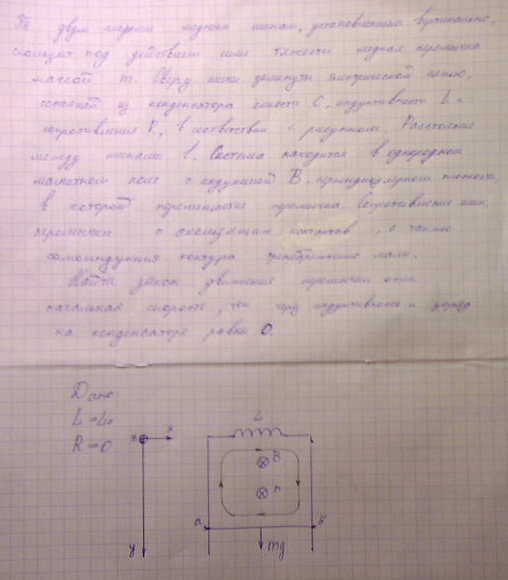 По двум гладким медным шинам, установленным вертикально,
скользит под действием силы тяжести медная перемычка
массой m. Сверху шины замкнуты электрической цепью,
состоящей из конденсатора ёмкости C, индуктивности L и
сопротивления R, в соответствии с рисунком. Расстояние
между шинами b. Система находится в однородном
магнитном поле с индукцией B, перпендикулярном плоскости,
в которой перемещается перемычка. Сопротивление шин,
перемычки и скользящих контактов, а также
самоиндукция контура пренебрежимо малы.
Найти закон движения перемычки если
начальная скорость, ток через индуктивность и заряд
на конденсаторе равны 0.
Дано
L = L₀
R = 0
x
y
L
B
n
mg